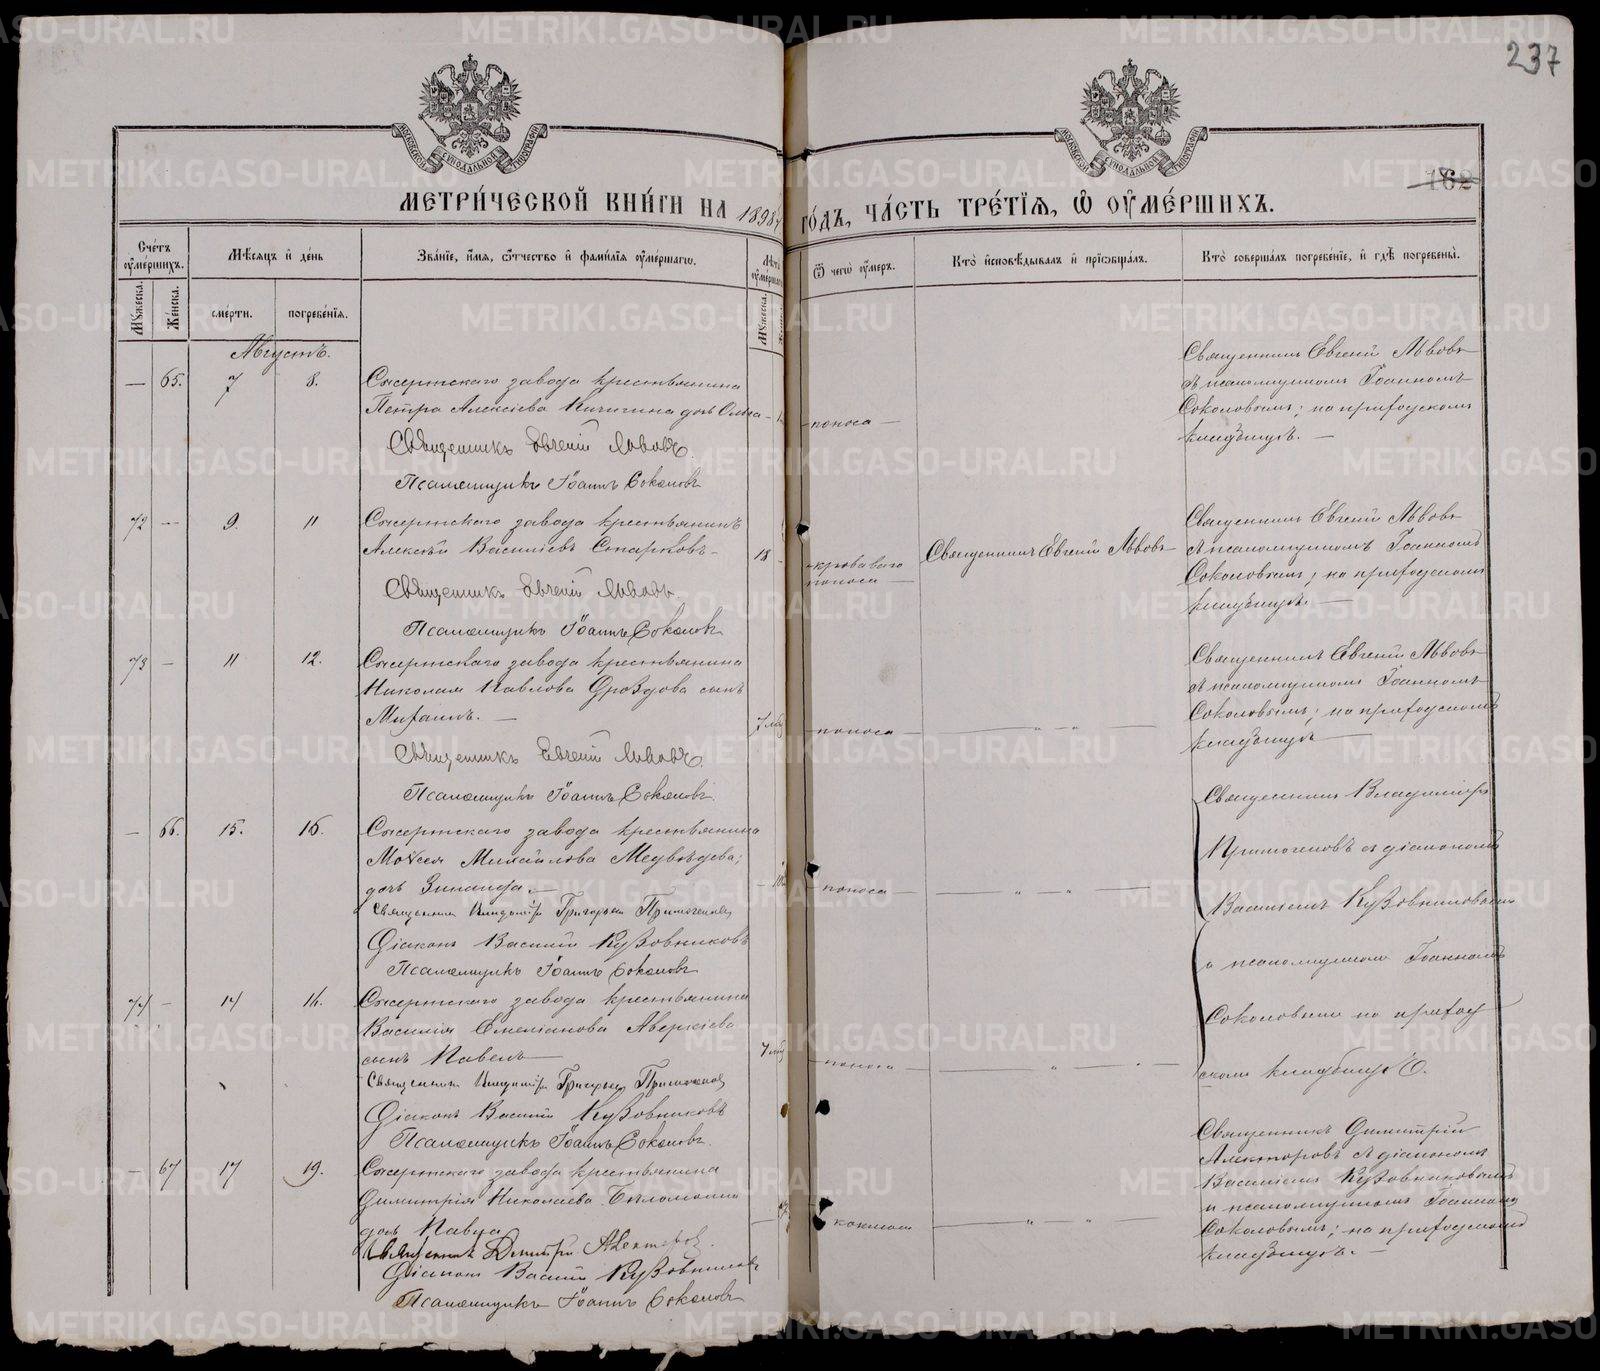 237
162
МЕТРИЧЕСКОЙ КНИГИ НА 1898 ГОДЪ, ЧАСТЬ ТРЕТІЯ, Ѡ ОУМЕРШИХЪ.
Счетъ оумершихъ.
Мѣсяцъ и день
Званіе, имя, отчество и фамилія оумершагѡ.
Лѣта оумершагѡ
Ѿ чегѡ оумеръ.
Кто исповѣдывалъ и пріобщалъ.
Кто совершалъ погребеніе, и гдѣ погребены.
Мужеска.
Женска.
смерти.
погребенія.
Мужеска.
Августъ.
— 65. 7 8.
Сысертскаго завода крестьянина
Петра Алексіева Кичигина дочь Ольга
Священникъ Евгеній Львовъ.
Псаломщикъ Іоаннъ Соколовъ
поноса
Священникъ Евгеній Львовъ
съ псаломщикомъ Іоанномъ
Соколовымъ; на приходскомъ
кладбищѣ.
72 — 9. 11
Сысертскаго завода крестьянинъ
Алексѣй Василіевъ Старковъ
18
Священникъ Евгеній Львовъ.
Псаломщикъ Іоаннъ Соколовъ
кроваваго
поноса
Священникъ Евгеній Львовъ
Священникъ Евгеній Львовъ
съ псаломщикомъ Іоанномъ
Соколовымъ; на приходскомъ
кладбищѣ.
73 — 11 12.
Сысертскаго завода крестьянина
Николая Павлова Дроздова сынъ
Михаилъ.
Священникъ Евгеній Львовъ.
Псаломщикъ Іоаннъ Соколовъ
поноса
Священникъ Евгеній Львовъ
съ псаломщикомъ Іоанномъ
Соколовымъ; на приходскомъ
кладбищѣ
— 66. 15. 16.
Сысертскаго завода крестьянина
Моѵсея Михаилова Медвѣдева,
дочь Зинаида.
Священникъ Владиміръ Григорьевъ
Діаконъ Василій Кузовниковъ
Псаломщикъ Іоаннъ Соколовъ
поноса
Священникъ Владиміръ
съ діакономъ
Василіемъ Кузовниковымъ
и псаломщикомъ Іоанномъ
Соколовымъ на приход
скомъ кладбищѣ.
74 — 14 16.
Сысертскаго завода крестьянина
Василія Емеліанова Аверкіева
сынъ Павелъ
Священникъ Владиміръ Григорьевъ
Діаконъ Василій Кузовниковъ
Псаломщикъ Іоаннъ Соколовъ.
поноса
— 67 17 19.
Сысертскаго завода крестьянина
Димитрія Николаева
дочь
Священникъ Димитрій Алекторовъ.
Діаконъ Василій Кузовниковъ
Псаломщикъ Іоаннъ Соколовъ
Священникъ Димитрій
Алекторовъ съ діакономъ
Василіемъ Кузовниковымъ
и псаломщикомъ Іоанномъ
Соколовымъ; на приходскомъ
кладбищѣ.
METRIKI.GASO-URAL.RU